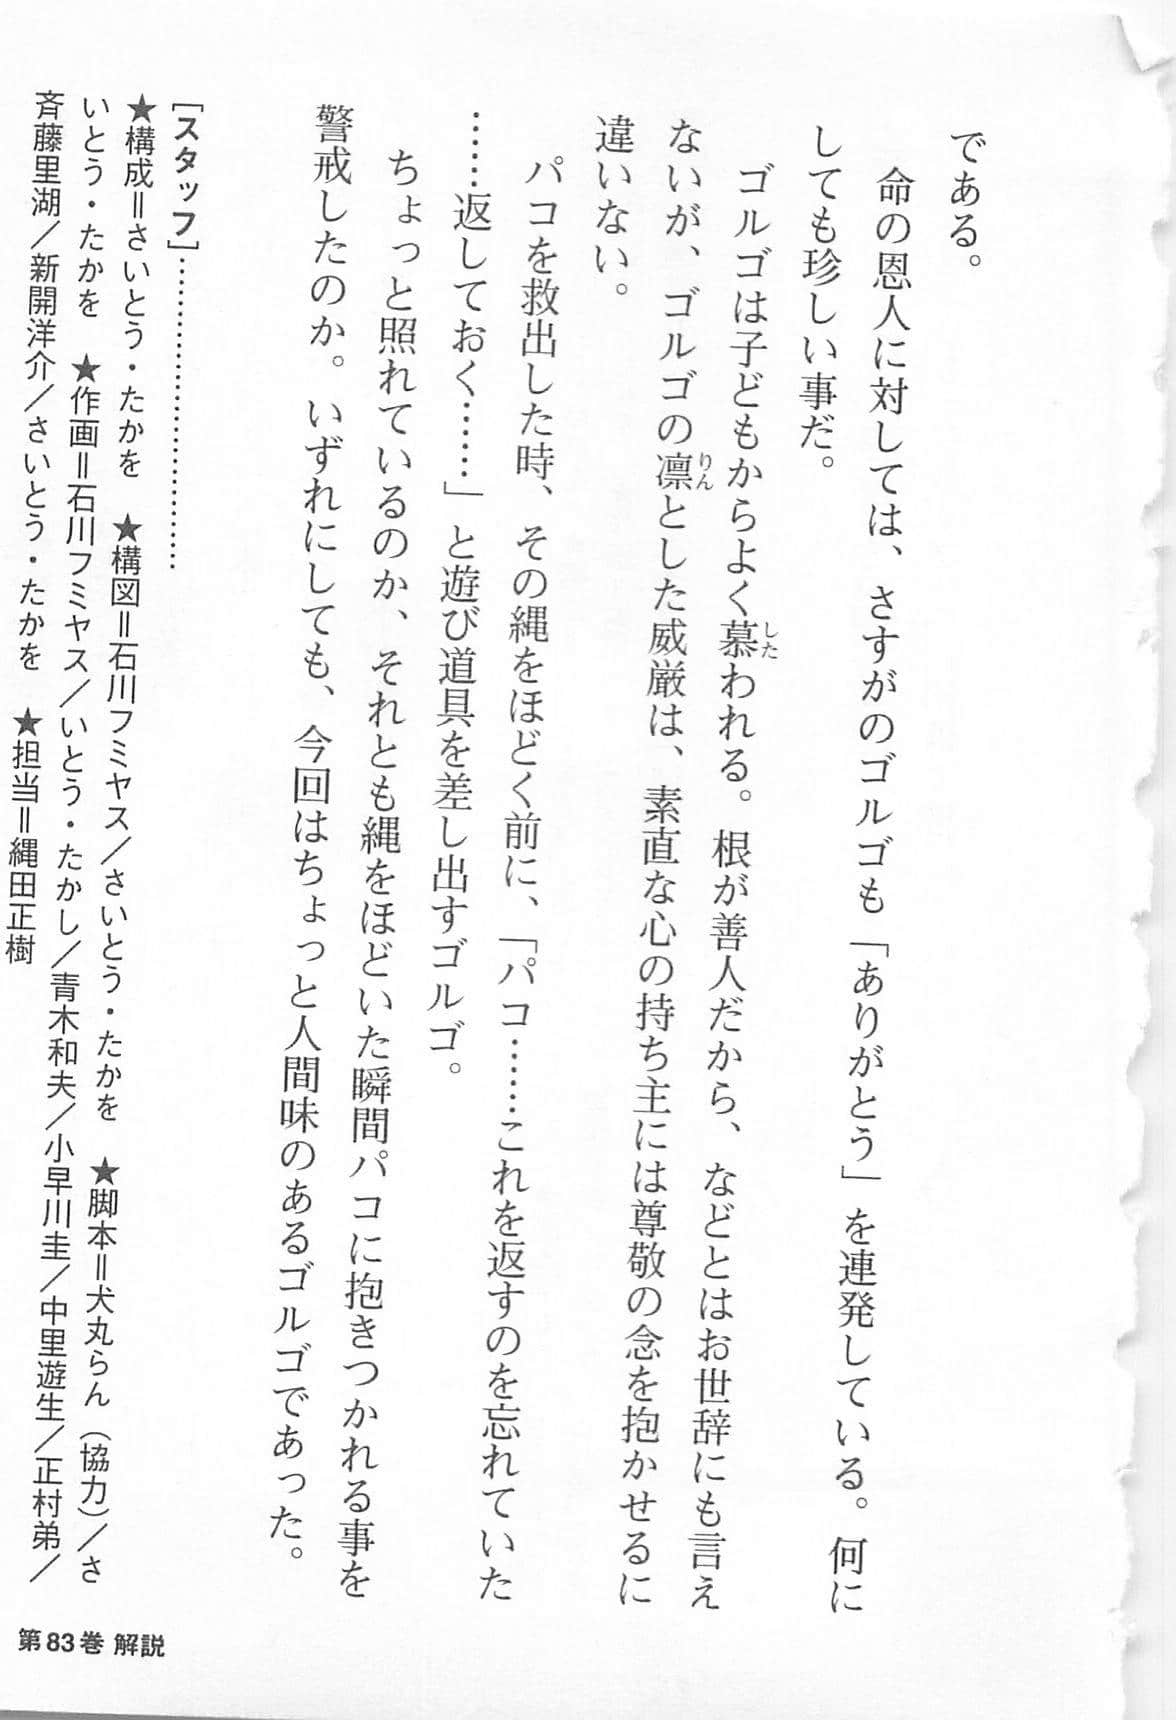 である。
命の恩人に対しては、さすがのゴルゴも「ありがとう」を連発している。何に
しても珍しい事だ。
ゴルゴは子どもからよく慕われる。根が善人だから、などとはお世辞にも言え
ないが、ゴルゴの凛とした威厳は、素直な心の持ち主には尊敬の念を抱かせるに
違いない。
パコを救出した時、その縄をほどく前に、「パコ……これを返すのを忘れていた
……返しておく……」と遊び道具を差し出すゴルゴ。
ちょっと照れているのか、それとも縄をほどいた瞬間パコに抱きつかれる事を
警戒したのか。いずれにしても、今回はちょっと人間味のあるゴルゴであった。
[スタッフ]……………………………
★構成＝さいとう・たかを ★構図＝石川フミヤス／さいとう・たかを ★脚本＝犬丸らん（協力）／さ
いとう・たかを ★作画＝石川フミヤス／いとう・たかし／青木和夫／小早川圭／中里遊生／正村弟／
斉藤里湖／新開洋介／さいとう・たかを ★担当＝縄田正樹
第83巻 解説